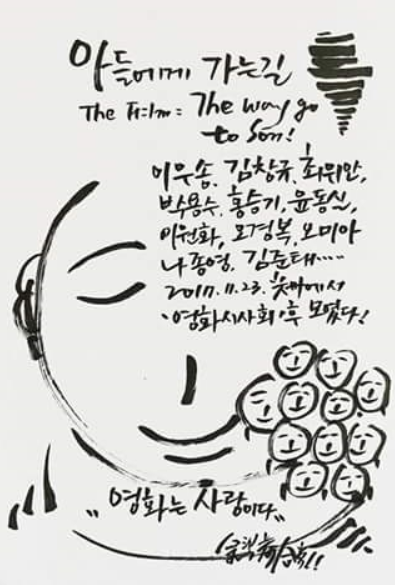 아들에게 가는길
The Film: The way go
to Son!
이우송, 김창규, 최위안,
박용수, 홍승기, 윤동실,
이원화, 오경복, 오미아
나종영, 김준태.....
2017.11.23. 에서
'영화시사회'후 모였다!
"영화는 사랑이다"